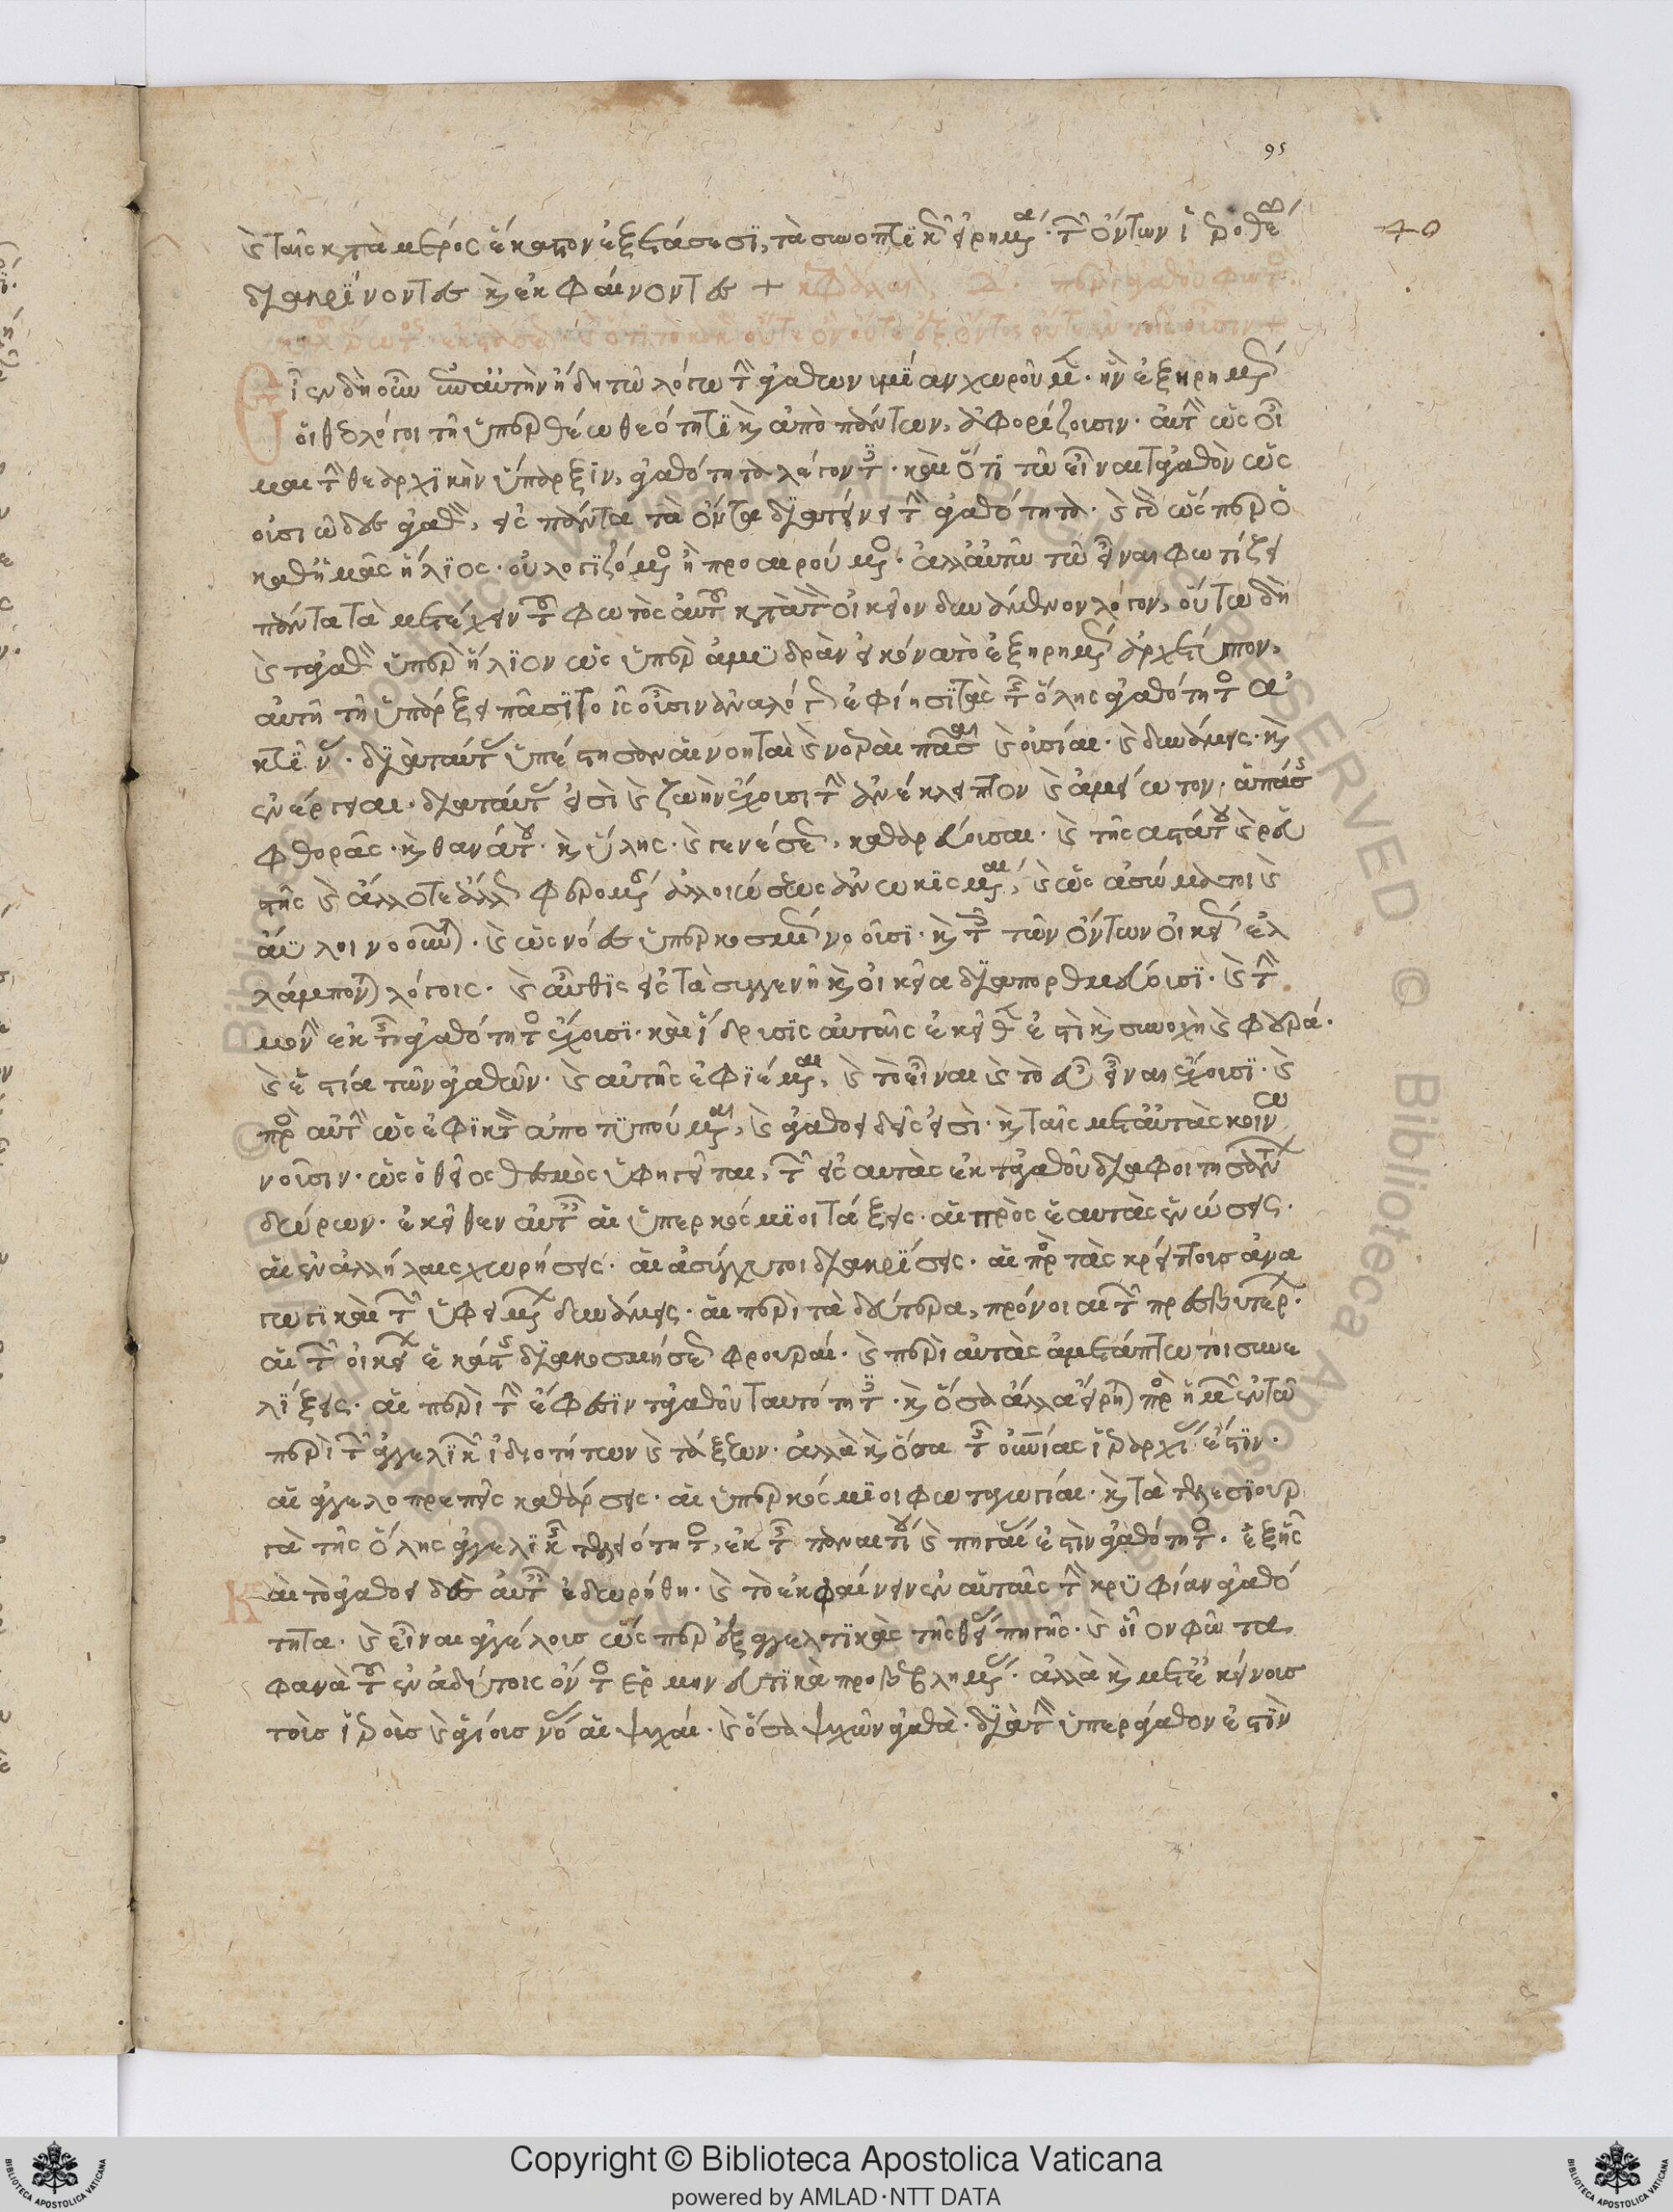 95
40
καὶ ταῖς κατὰ μέρος ἕκαστον ἐξετάσεσι, τὰ συνοπτικῶς εἰρημένα τῷ ὄντως ἱεροθέῳ
διακρίνοντες καὶ ἐκφαίνοντες +
Εἶεν δὴ οὖν ἐπ' αὐτὴν ἤδη τῷ λόγῳ τὴν ἀγαθωνυμίαν χωρῶμεν. ἣν ἐξῃρημένως
οἱ θεολόγοι τῇ ὑπερθέῳ θεότητι καὶ ἀπὸ πάντων, ἀφορίζουσιν. αὐτὴν ὡς οἶ
μαι τὴν θεαρχικὴν ὕπαρξιν, ἀγαθότητα λέγοντες. καὶ ὅτι τῷ εἶναι τἀγαθὸν ὡς
οὐσιῶδες ἀγαθὸν, εἰς πάντα τὰ ὄντα διατείνει τὴν ἀγαθότητα. καὶ γὰρ ὥσπερ ὁ
καθ' ἡμᾶς ἥλιος. οὐ λογιζόμενος ἢ προαιρούμενος. ἀλλ' αὐτῷ τῷ εἶναι φωτίζει
πάντα τὰ μετέχειν τοῦ φωτὸς αὐτοῦ κατὰ τὸν οἰκεῖον δυνάμενον λόγον, οὕτω δὴ
καὶ τἀγαθὸν ὑπὲρ ἥλιον ὡς ὑπὲρ ἀμυδρὰν εἰκόνα τὸ ἐξῃρημένως ἀρχέτυπον,
αὐτῇ τῇ ὑπάρξει πᾶσι τοῖς οὖσιν ἀναλόγως ἐφίησι τὰς τῆς ὅλης ἀγαθότητος ἀ
κτῖνας. διὰ ταύτας ὑπέστησαν αἱ νοηταὶ καὶ νοεραὶ πᾶσαι καὶ οὐσίαι. καὶ δυνάμεις. καὶ
ἐνέργειαι. διὰ ταύτας εἰσὶ καὶ ζωὴν ἔχουσι τὴν ἀνέκλειπτον καὶ ἀμείωτον. ἁπάσης
φθορᾶς. καὶ θανάτου. καὶ ὕλης. καὶ γενέσεως, καθαρεύουσαι. καὶ τῆς ἀστάτου καὶ ῥευ
στῆς καὶ ἄλλοτε ἄλλως φερομένης ἀλλοιώσεως ἀνῳκισμέναι, καὶ ὡς ἀσώματοι καὶ
ἄϋλοι νοοῦνται. καὶ ὡς νόες ὑπερκοσμίως νοοῦσι. καὶ τοὺς τῶν ὄντων οἰκείως ἐλ
λάμπονται λόγους. καὶ αὖθις εἰς τὰ συγγενῆ καὶ οἰκεῖα διαπορθμεύουσι. καὶ τὴν
μονὴν ἐκ τῆς ἀγαθότητος ἔχουσι. καὶ ἵδρυσις αὐταῖς ἐκεῖθέν ἐστι καὶ συνοχὴ καὶ φρουρά.
καὶ ἑστία τῶν ἀγαθῶν. καὶ αὐτῆς ἐφιέμεναι, καὶ τὸ εἶναι καὶ τὸ εὖ εἶναι ἔχουσι. καὶ
πρὸς αὐτὴν ὡς ἐφικτὸν ἀποτυπούμεναι, καὶ ἀγαθοειδεῖς εἰσὶ. καὶ ταῖς μετ' αὐτὰς κοινω
νοῦσιν. ὡς ὁ θεῖος θεσμὸς ὑφηγεῖται, τῶν εἰς αὐτὰς ἐκ τἀγαθοῦ διαφοιτησάντων
δώρων. ἐκεῖθεν αὐταῖς αἱ ὑπερκόσμιοι τάξεις. αἱ πρὸς ἑαυτὰς ἑνώσεις.
αἱ ἐν ἀλλήλαις χωρήσεις. αἱ ἀσύγχυτοι διακρίσεις. αἱ πρὸς τὰς κρείττους ἀνα
γωγικαὶ τῶν ὑφειμένων δυνάμεις. αἱ περὶ τὰ δεύτερα, πρόνοιαι τῶν πρεσβυτέρων.
αἱ τῶν οἰκείων ἑκάστης διακοσμήσεως φρουραί. καὶ περὶ αὐτὰς ἀμετάπτωτοι συνε
λίξεις. αἱ περὶ τὴν ἔφεσιν τἀγαθοῦ ταυτότητες. καὶ ὅσα ἄλλα εἴρηται πρὸς ἡμῶν ἐν τῷ
περὶ τῶν ἀγγελικῶν ἰδιοτήτων καὶ τάξεων. ἀλλὰ καὶ ὅσα τῆς οὐρανίας ἱεραρχίας ἐστιν.
αἱ ἀγγελοπρεπεῖς καθάρσεις. αἱ ὑπερκόσμιοι φωταγωγίαι. καὶ τὰ τελεσιουρ
γὰ τῆς ὅλης ἀγγελικῆς τελειότητος, ἐκ τῆς παναιτίου καὶ πηγαίας ἐστὶν ἀγαθότητος. ἐξ ἧς
Καὶ τὸ ἀγαθοειδὲς αὐταῖς ἐδωρήθη. καὶ τὸ ἐκφαίνειν ἐν αὑταῖς τὴν κρυφίαν ἀγαθό
τητα. καὶ εἶναι ἀγγέλους ὥσπερ ἐξαγγελτικὰς τῆς θείας πηγῆς. καὶ οἷον φῶτα
φανὰ τοῦ ἐν ἀδύτοις ὄντος ἑρμηνευτικὰ προβεβλημένας. ἀλλὰ καὶ μετ' ἐκείνους
τοὺς ἱεροὺς καὶ ἁγίους νόας αἱ ψυχαί. καὶ ὅσα ψυχῶν ἀγαθὰ. διὰ τὴν ὑπεράγαθον ἐστὶν
Copyright © Biblioteca Apostolica Vaticana
powered by AMLAD·NTT DATA